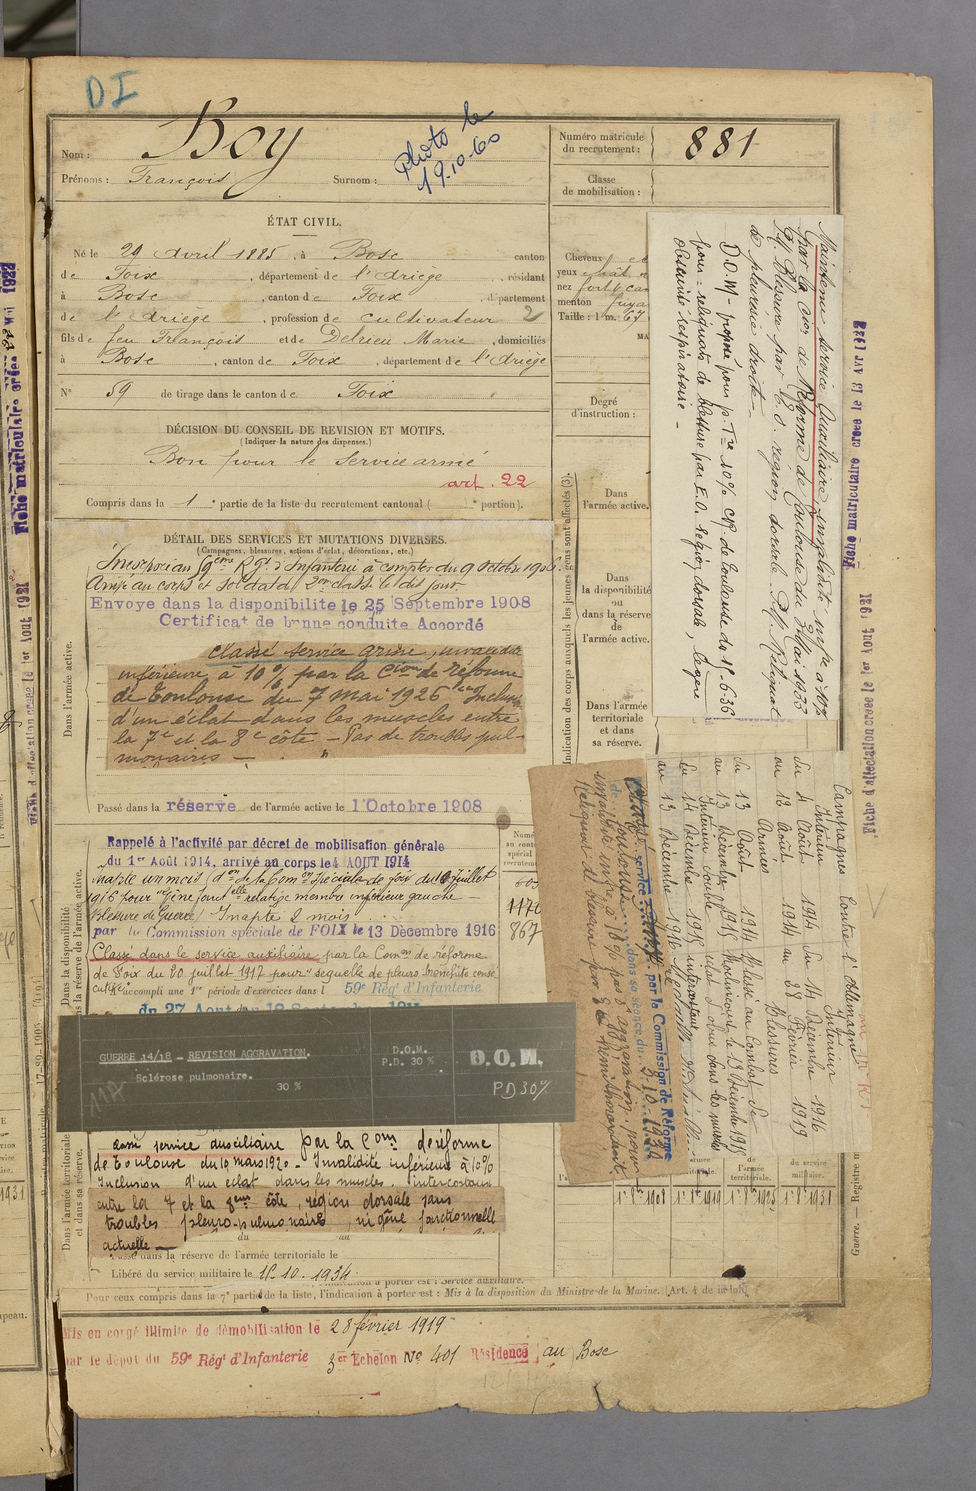 DI
Nom : Boy
Prénoms : François Surnom :
photo le
19-10-60
Numéro matricule
du recrutement : 881
Classe
de mobilisation :
ÉTAT CIVIL.
Né le 29 avril 1885, à Bosc canton
de Foix, département de l'Ariège, résidant
à Bosc, canton de Foix, département
de l'Ariège, profession de cultivateur 2
fils de feu François et de Delrieu Marie, domiciliés
à Bosc, canton de Foix, département de l'Ariège
N° 59 de tirage dans le canton de Foix
Cheveux
yeux
nez fort
menton fuya
Taille : 1 m. 67
DÉCISION DU CONSEIL DE REVISION ET MOTIFS.
(Indiquer la nature des dispenses.)
Bon pour le service armé
art. 22
Compris dans la 1e partie de la liste du recrutement cantonal ( portion).
Degré
d'instruction :
DÉTAIL DES SERVICES ET MUTATIONS DIVERSES.
(Campagnes, blessures, actions d'éclat, décorations, etc.)
Dans l'armée active.
Incorporé au 59ème Rgt d'Infanterie à compter du 9 octobre 1906
Arrivé au corps et soldat de 2me classe le dit jour.
Envoyé dans la disponibilité le 25 Septembre 1908
Certificat de bonne conduite Accordé
classé service armé, invalidité
inférieure à 10% par la Cion de réforme
de Toulouse du 7 mai 1926 Inclusion
d'un éclat dans les muscles entre
la 7e et la 8e côte - Pas de troubles pul-
monaires -
Passé dans la réserve de l'armée active le 1' Octobre 1908
Dans la disponibilité
ou dans la réserve de l'armée active.
Rappelé à l'activité par décret de mobilisation générale
du 1er Août 1914, arrivé au corps le 4 AOUT 1914
Inapte un mois (don de la Comon Spéciale de Foix du 10 Juillet
1916 pour "Gêne fonctelle relative membre inférieur gauche -
Blessure de Guerre) Inapte 2 mois
par la Commission spéciale de FOIX le 13 Décembre 1916
Classé dans le service auxiliaire par la Comon de réforme
de Foix du 20 juillet 1917 pour "sequelle de pleuro bronchite
A accompli une 1re période d'exercices dans l 59e Régt d'Infanterie
du 27 Août
1170
867
GUERRE 14/18 - REVISION AGGRAVATION.
Sclérose pulmonaire.
30 %
D.O.M.
P.D. 30 %
D.O.M.
PD 30%
Dans l'armée territoriale
et dans sa réserve.
Classé service auxiliaire par la Comon de réforme
de Toulouse du 10 mars 1920 - Invalidité inférieure à 10%
Inclusion d'un éclat dans les muscles intercostaux
entre la 7 et la 8ème côte, région dorsale sans
troubles pleuro-pulmonaires, ni gêne fonctionnelle
actuelle -
du au
Passé dans la réserve de l'armée territoriale le
Libéré du service militaire le 15.10.1934
l'indication à porter est : Service auxiliaire.
Pour ceux compris dans la 7e partie de la liste, l'indication à porter est : Mis à la disposition du Ministre de la Marine. (Art. 4 de la loi)
Mis en congé illimité de démobilisation le 28 février 1919
par le dépôt du 59e Régt d'Infanterie 3er Echelon No 401 Résidence au Bosc
Indication des corps auxquels les jeunes gens sont affectés (3).
Dans
l'armée active.
Dans
la disponibilité
ou
dans la réserve
de
l'armée active.
Dans l'armée
territoriale
et dans
sa réserve.
Maintenu service Auxiliaire Invalidité infre à 10%
par la Cion de Réforme de Toulouse du 3 Mai 1933
1°/ Blessure par E.O. région dorsale 2°/ Reliquat
de pleurésie droite -
D.O.M - proposé pour p. Tre 10% CR de Toulouse du 15-6-36
pour : reliquats de blessure par E.O. région dorsale, légère
obscurité respiratoire -
Campagnes contre l'Allemagne
Intérieur Intérieur
du 4 Août 1914 du 14 Décembre 1916
au 12 Août 1914 au 28 Février 1919
Armées Blessures
du 13 Août 1914 Blessé au Combat de
au 13 Décembre 1915 le 13 Décembre 1915
Intérieur double éclat d'obus dans les muscles
du 14 Décembre 1915 intercostaux
au 13 Décembre 1916
service armé par la Commission de Réforme
de Toulouse dans sa séance du 3.10.1924
invalidité infre à 10% pas d'aggravation pour
Reliquat de blessure par E.O. hémithorax droit
de
l'armée
territoriale.
du service
militaire.
1er 8e 1908
1er 8e 1919
1er 8e 1925
1er 8e 1931
Fiche matriculaire créée le 13 AVR 1922
Fiche d'affectation créée le 1er Août 1921
Guerre. - Registre m
Fiche matriculaire créée
Mai 1922
Fiche d'affectation créée le 1er Août 1921